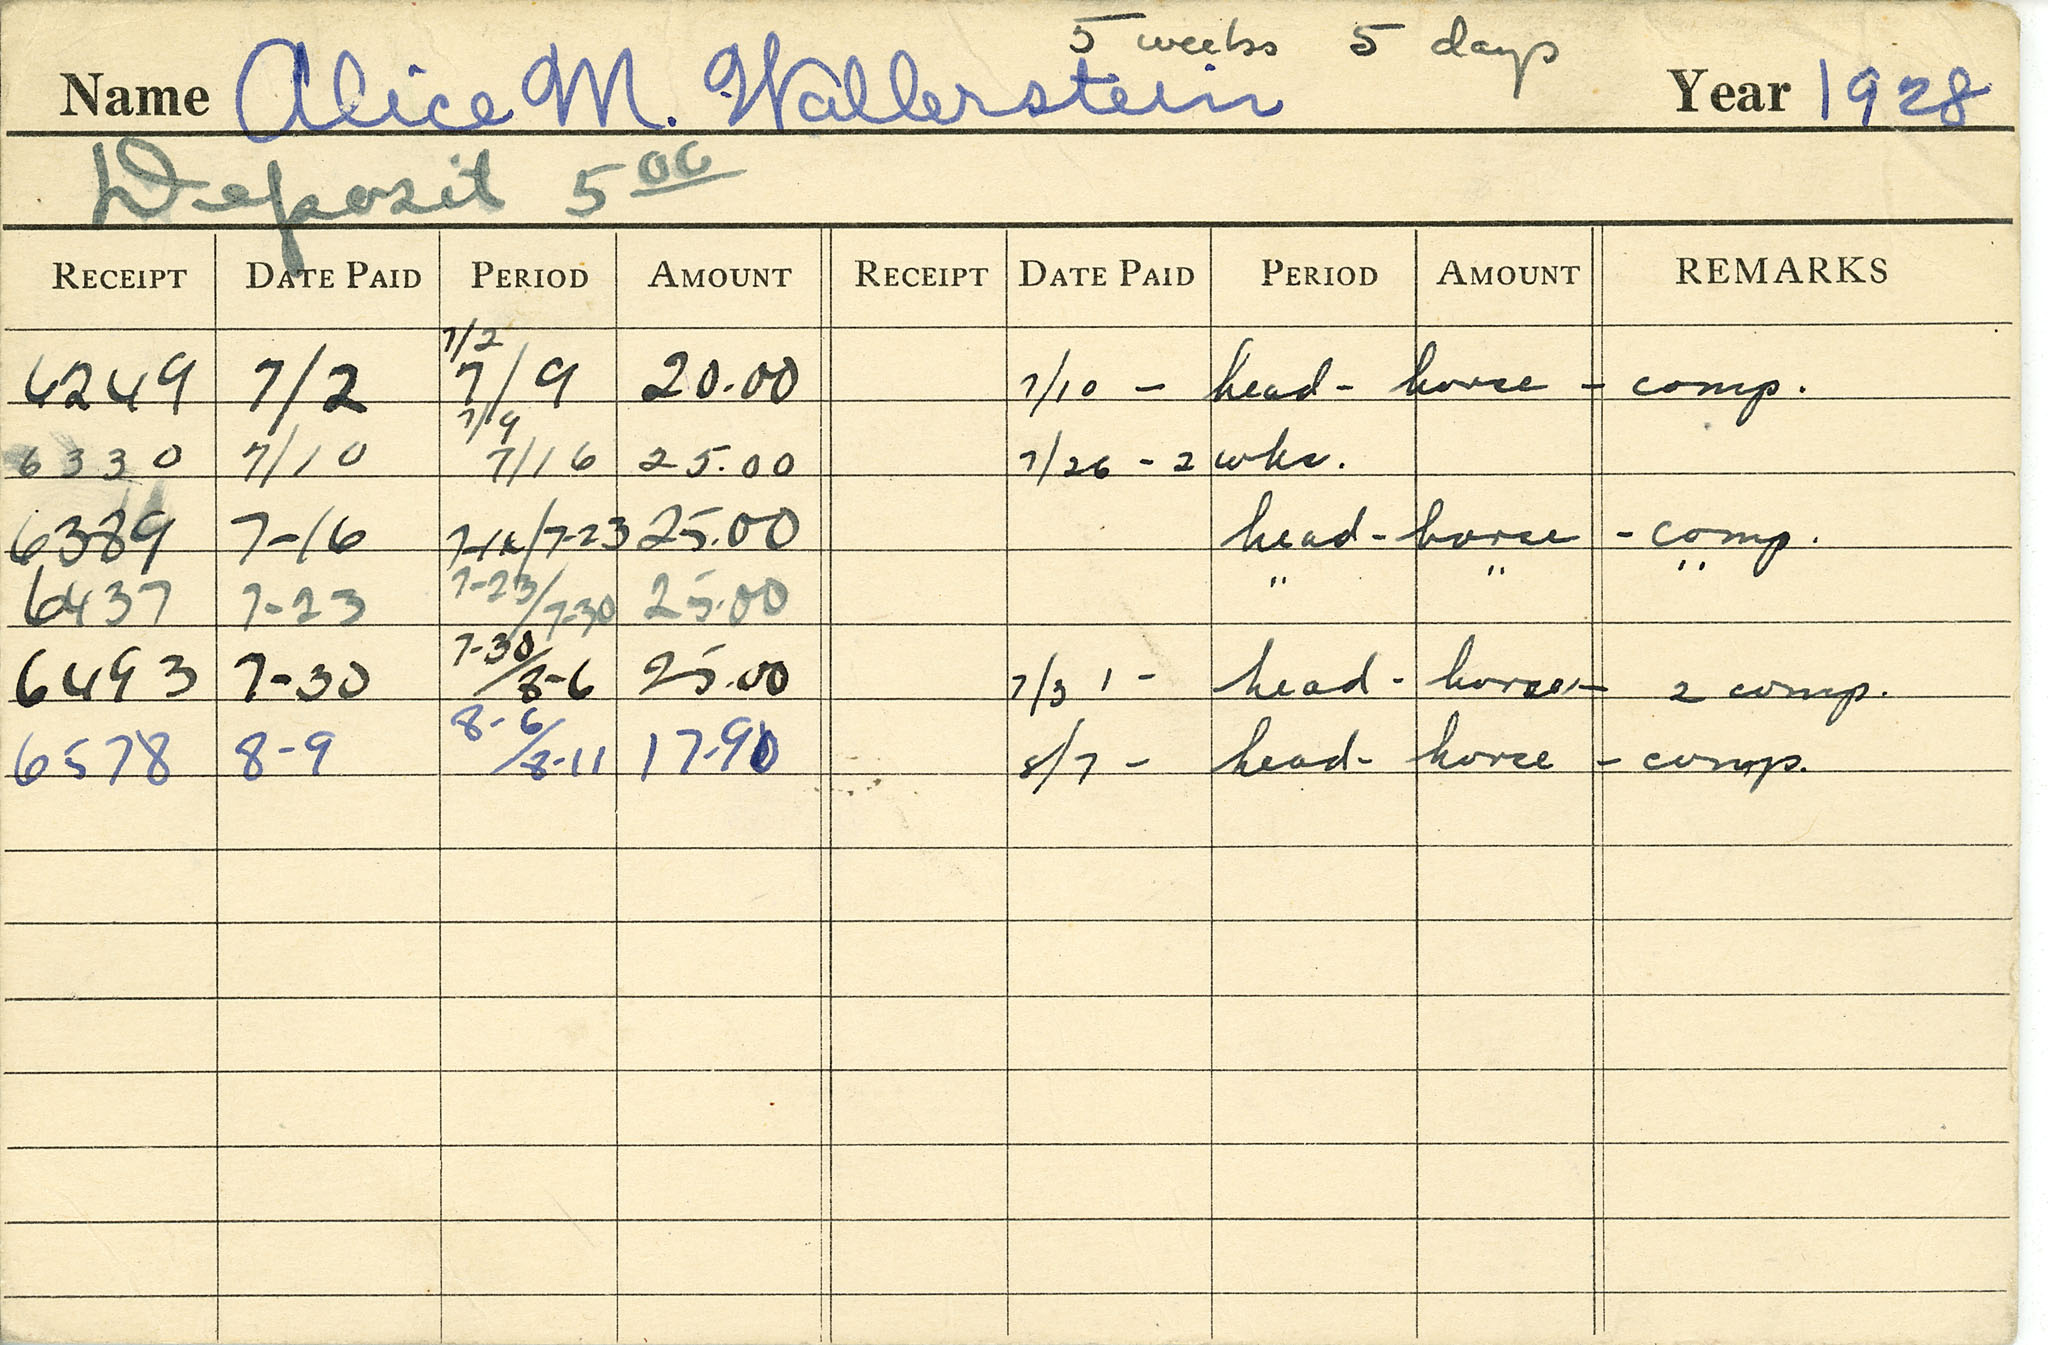 5 weeks 5 days
Name Alice M. Wallerstein Year 1928
Deposit 5 00
RECEIPT DATE PAID PERIOD AMOUNT RECEIPT DATE PAID PERIOD AMOUNT REMARKS
6249 7/2 7/2 7/9 20.00 7/10 - head - horse - comp.
6330 7/10 7/9 7/16 25.00 7/26 - 2 wks.
6389 7-16 7-16/7-23 25.00 head - horse - comp.
6437 7-23 7-23/7-30 25.00 " " "
6493 7-30 7-30/8-6 25.00 7/31 - head - horse - 2 comp.
6578 8-9 8-6/8-11 17.90 8/7 - head - horse - comp.